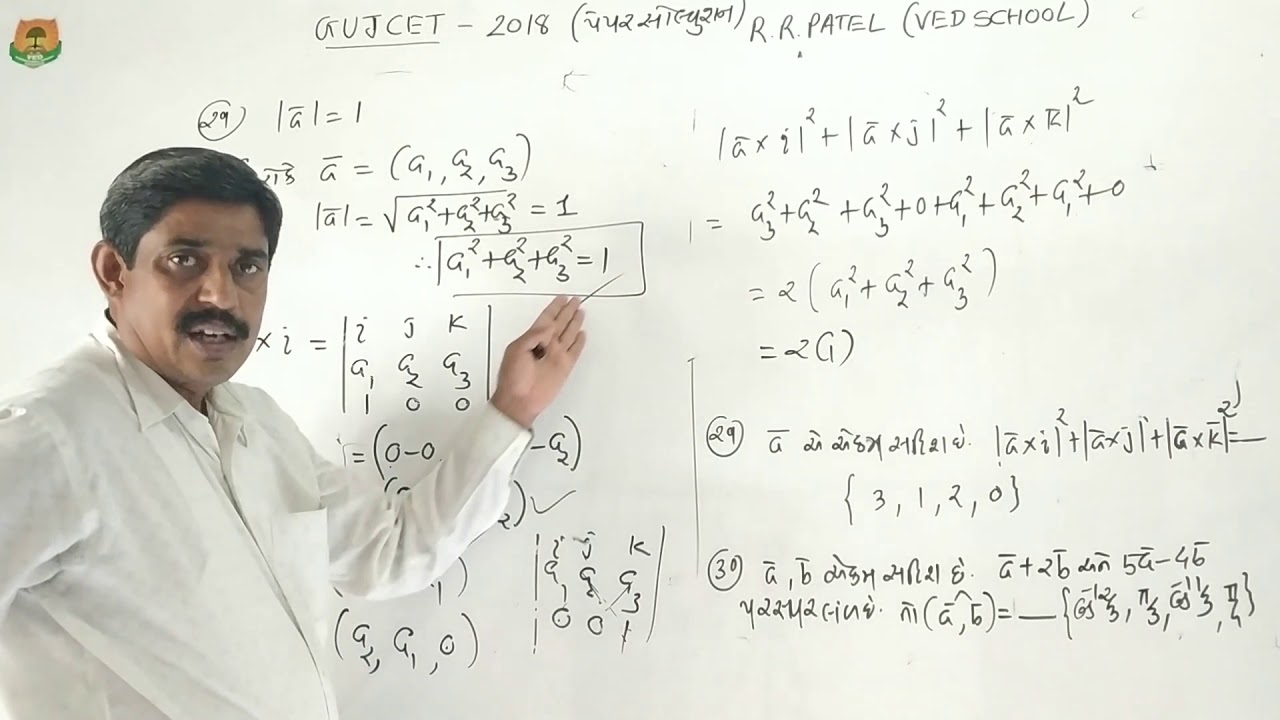 GUJCET - 2018 (પેપર સોલ્યુશન) R.R. PATEL (VED SCHOOL)
VED
(29) |ā| = 1
ધારો કે ā = (a₁, a₂, a₃)
|ā| = √a₁² + a₂² + a₃² = 1
∴ a₁² + a₂² + a₃² = 1
× i = | i j k |
| a₁ a₂ a₃ |
| 1 0 0 |
= (0-0 -a₂)
₂) ✓
| i j k |
| a₁ a₂ a₃ |
| 0 0 1 |
(a₂, a₁, 0)
|ā × i|² + |ā × j|² + |ā × k̄|²
= a₃² + a₂² + a₃² + 0 + a₁² + a₂² + a₁² + 0
= 2 (a₁² + a₂² + a₃²)
= 2(1)
(29) ā એ એકમ સદિશ છે. |ā×i|² + |ā×j|² + |ā×k̄|² = __
{ 3, 1, 2, 0 }
(30) ā, b̄ એકમ સદિશ છે. ā + 2b̄ અને 5ā - 4b̄
પરસ્પર લંબ છે. તો (ā,^b̄) = __ {cos⁻¹ 2/3, π/3, cos⁻¹ 1/3, π/4}